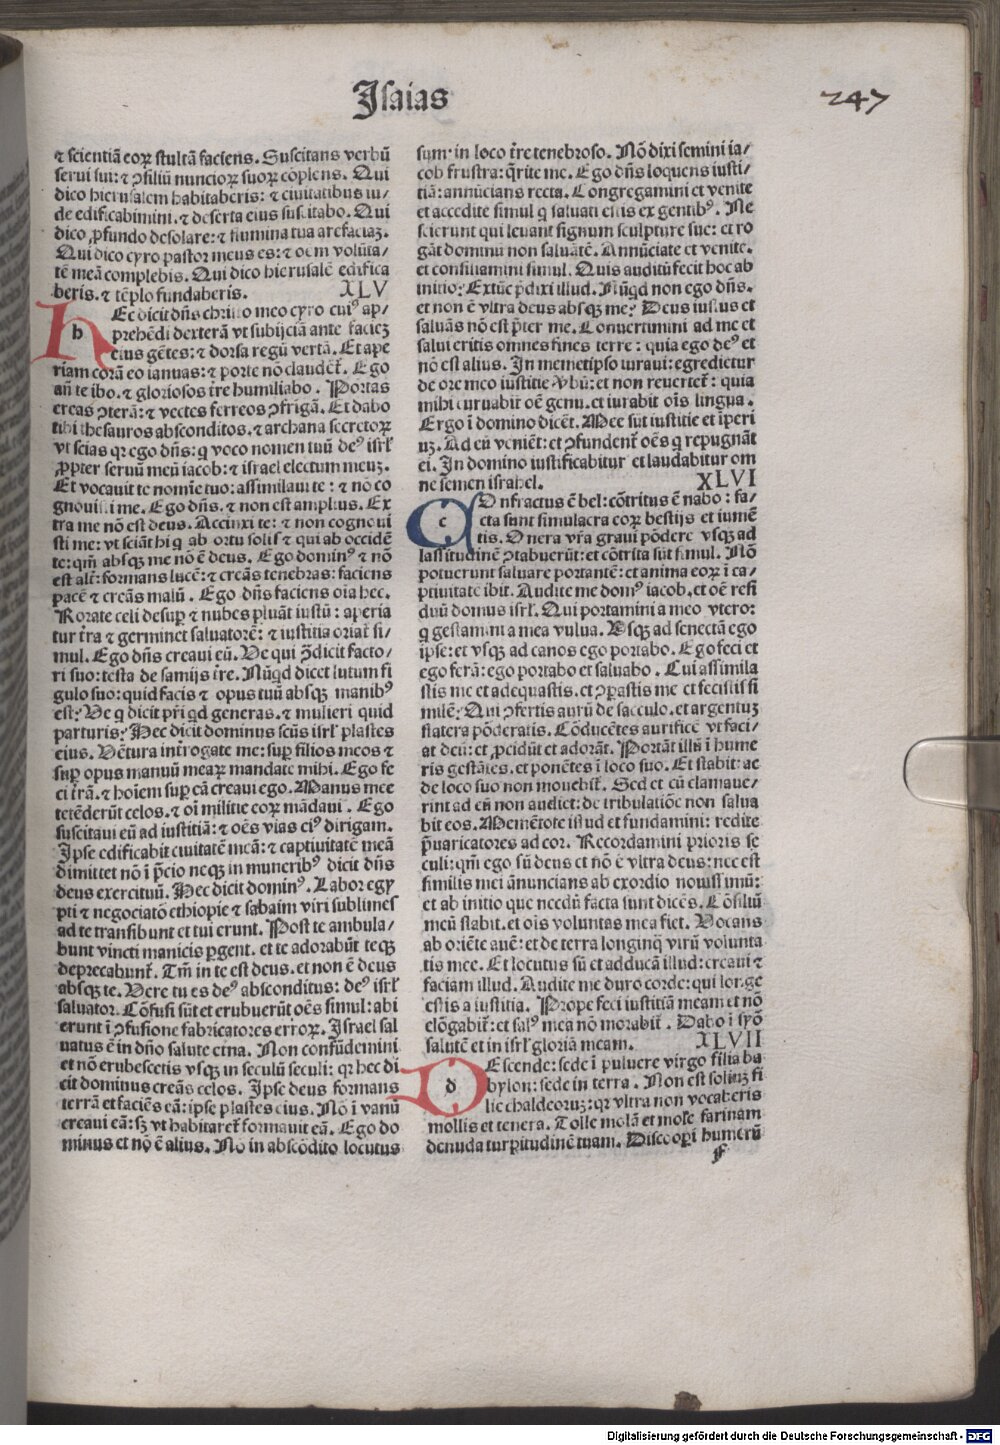 Isaias
247
⁊ scientiā eoꝝ stultā faciens. Suscitans verbū
serui sui: ⁊ ꝯsiliū nuncioꝝ suoꝝ cōplens. Qui
dico hierusalem habitaberis: ⁊ ciuitatibus iu/
de edificabimini. ⁊ deserta eius suscitabo. Qui
dico ꝓfundo desolare: ⁊ flumina tua arefaciaꝫ.
Qui dico cyro pastor meus es: ⁊ oēm volūta/
tē meā complebis. Qui dico hierusalē edifica
beris. ⁊ tēplo fundaberis. XLV
h Ec dicit dn̄s christo meo cyro cuiꝰ ap/
prehēdi dexterā vt subijciā ante facieꝫ
eius gētes: ⁊ dorsa regū vertā. Et ape
riam corā eo ianuas: ⁊ porte nō claudēt̉. Ego
an̄ te ibo. ⁊ gloriosos t̄re humiliabo. Portas
ereas ꝯterā: ⁊ vectes ferreos ꝯfrigā. Et dabo
tibi thesauros absconditos. ⁊ archana secretoꝝ
vt scias qꝛ ego dn̄s: q voco nomen tuū deꝰ isrl̄
ꝓpter seruū meū iacob: ⁊ israel electum meuꝫ.
Et vocaui te nomīe tuo: assimilaui te: ⁊ nō co
gnouisti me. Ego dn̄s. ⁊ non est amplius. Ex
tra me nō est deus. Accinxi te: ⁊ non cognoui
sti me: vt sciāt hi q ab ortu solis ⁊ qui ab occidē
te: qm̄ absqꝫ me nō ē deus. Ego dominꝰ ⁊ nō
est alt̉: formans lucē: ⁊ creās tenebras: faciens
pacē ⁊ creās malū. Ego dn̄s faciens oīa hec.
Rorate celi desuꝑ ⁊ nubes pluāt iustū: aperia
tur t̄ra ⁊ germinet saluatorē: ⁊ iustitia oriat̉ si/
mul. Ego dn̄s creaui eū. Ve qui ꝯ̄dicit facto/
ri suo: testa de samijs t̄re. Nūqd dicet lutum fi
gulo suo: quid facis ⁊ opus tuū absqꝫ manibꝰ
est? Ve q dicit pr̄i qd generas. ⁊ mulieri quid
parturis? Hec dicit dominus scūs isrl̄ plastes
eius. Vētura int̉rogate me: suꝑ filios meos ⁊
suꝑ opus manuū meaꝝ mandate mihi. Ego fe
ci t̄rā. ⁊ hoīem suꝑ eā creaui ego. Manus mee
tetēderūt celos. ⁊ oī militie eoꝝ mādaui. Ego
suscitaui eū ad iustitiā: ⁊ oēs vias eiꝰ dirigam.
Ipse edificabit ciuitatē meā: ⁊ captiuitatē meā
dimittet nō ī p̄cio neqꝫ in muneribꝰ dicit dn̄s
deus exercituū. Hec dicit dominꝰ. Labor egy
pti ⁊ negociatō ethiopie ⁊ sabaim viri sublimes
ad te transibunt et tui erunt. Post te ambula/
bunt vincti manicis ꝑgent. et te adorabūt teqꝫ
deprecabunt̉. Tm̄ in te est deus. et non ē deus
absqꝫ te. Vere tu es deꝰ absconditus: deꝰ isrl̄
saluator. Cōfusi sūt et erubuerūt oēs simul: abi
erunt ī ꝯfusione fabricatores erroꝝ. Israel sal
uatus ē in dn̄o salute etna. Non confūdemini
et nō erubescetis vsqꝫ in seculū seculi: qꝛ hec di
cit dominus creās celos. Ipse deus formans
terrā et faciēs eā: ipse plastes eius. Nō ī vanū
creaui eā: sꝫ vt habitaret̉ formauit eā. Ego do
minus et nō ē alius. Nō in abscōdito locutus
sum: in loco t̄re tenebroso. Nō dixi semini ia/
cob frustra: q̄rite me. Ego dn̄s loquens iusti/
tiā: annūcians recta. Congregamini et venite
et accedite simul q saluati estis ex gentibꝰ. Ne
scierunt qui leuant signum sculpture sue: et ro
gāt dominū non saluātē. Annūciate et venite.
et consiliamini simul. Quis auditū fecit hoc ab
initio? Extūc p̄dixi illud. Nūqd non ego dn̄s.
et non ē vltra deus absqꝫ me? Deus iustus et
saluās nō est p̄ter me. Conuertimini ad me et
salui eritis omnes fines terre: quia ego deꝰ et
nō est alius. In memetipso iuraui: egredietur
de ore meo iustitie v̄bū: et non reuertet̉: quia
mihi curuabit̉ oē genu. et iurabit oīs lingua.
Ergo ī domino dicēt. Mee sūt iustitie et īperi
uꝫ. Ad eū veniēt: et ꝯfundent̉ oēs q repugnāt
ei. In domino iustificabitur et laudabitur om
ne semen israhel. XLVI
c Onfractus ē bel: cōtritus ē nabo: fa/
cta sunt simulacra eoꝝ bestijs et iumē
tis. Onera vr̄a graui pōdere vsqꝫ ad
lassitudinē ꝯtabuerūt: et cōtrita sūt simul. Nō
potuerunt saluare portantē: et anima eoꝝ ī ca/
ptiuitatē ibit. Audite me domꝰ iacob. et oē resi
duū domus isrl̄. Qui portamini a meo vtero:
q gestamini a mea vulua. Vsqꝫ ad senectā ego
ipse: et vsqꝫ ad canos ego portabo. Ego feci et
ego ferā: ego portabo et saluabo. Cui assimila
stis me et adequastis. et ꝯꝑastis me et fecistis si
milē? Qui ꝯfertis aurū de sacculo. et argentuꝫ
statera pōderatis. Cōducētes aurificē vt faci/
at deū: et ꝓcidūt et adorāt. Portāt illū ī hume
ris gestātes. et ponētes ī loco suo. Et stabit: ac
de loco suo non mouebit̉. Sed et cū clamaue/
rint ad eū non audiet: de tribulatiōe non salua
bit eos. Memētote istud et fundamini: redite
p̄uaricatores ad cor. Recordamini prioris se
culi: qm̄ ego sū deus et nō ē vltra deus: nec est
similis mei ānuncians ab exordio nouissimū:
et ab initio que necdū facta sunt dicēs. Cōsiliū
meū stabit. et oīs voluntas mea fiet. Vocans
ab oriēte auē: et de terra longinq̄ virū volunta
tis mee. Et locutus sū et adducā illud: creaui ⁊
faciam illud. Audite me duro corde: qui longe
estis a iustitia. Prope feci iustitiā meam et nō
elōgabit̉: et salꝰ mea nō morabit̉. Dabo ī syō
salutē et in isrl̄ gloriā meam. XLVII
d Escende: sede ī puluere virgo filia ba
bylon: sede in terra. Non est soliuꝫ fi
lie chaldeoruꝫ: qꝛ vltra non vocaberis
mollis et tenera. Tolle molā et mole farinam
denuda turpitudinē tuam. Discooꝑi humerū
F
Digitalisierung gefördert durch die Deutsche Forschungsgemeinschaft - DFG